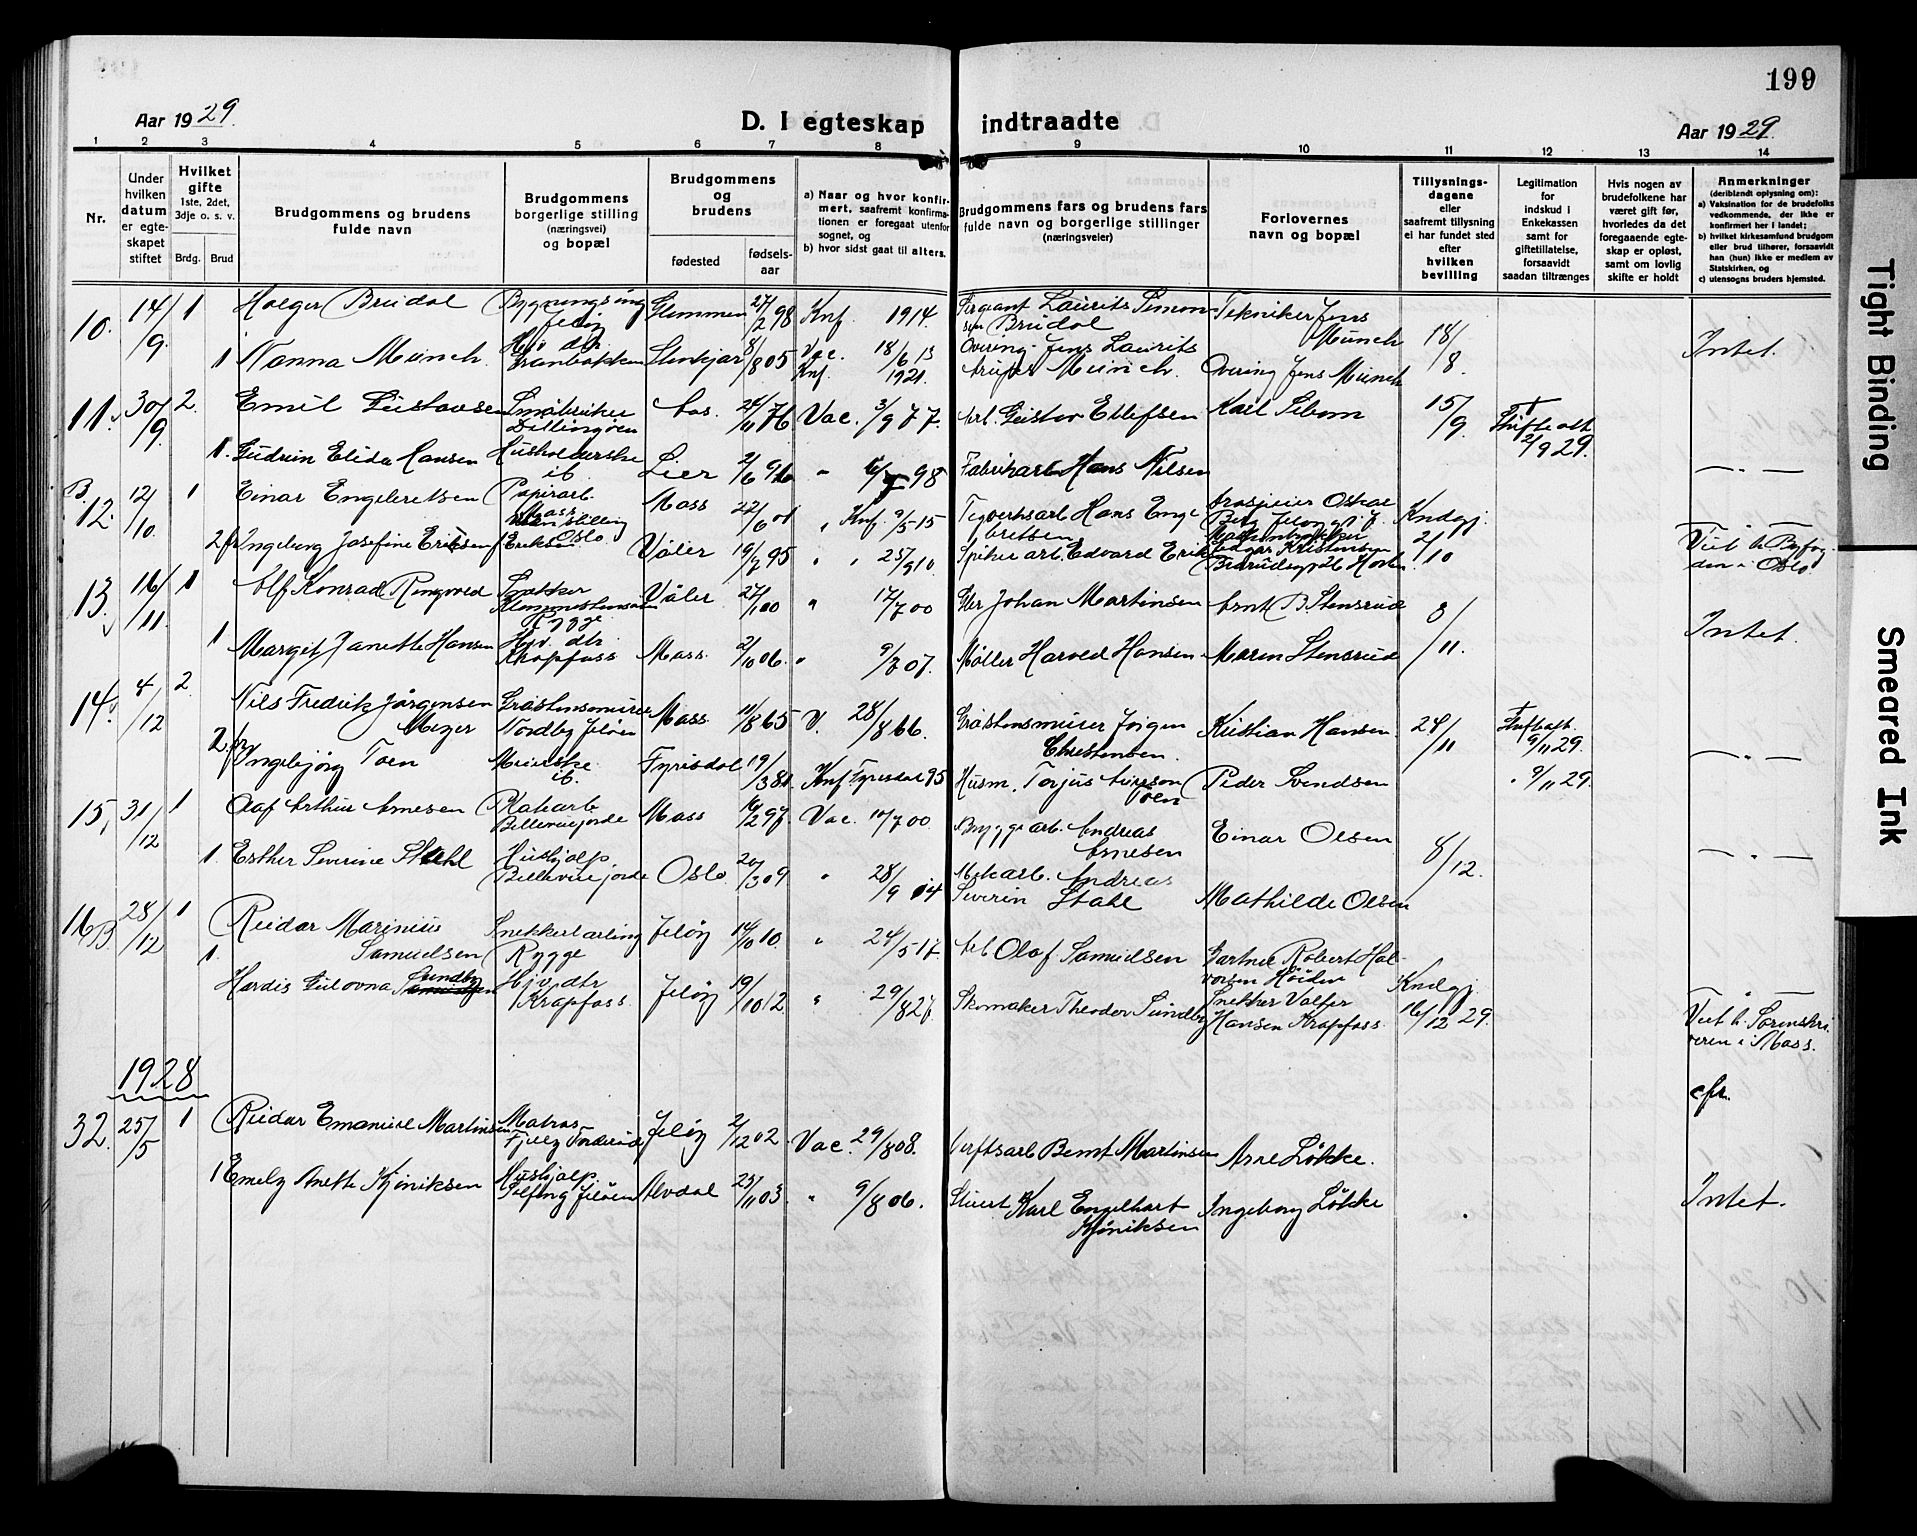 199
Aar 1929.
D. I egteskap indtraadte
Aar 1929.
1 2 3 4 5 6 7 8 9 10 11 12 13 14
Nr.
Under hvilken datum er egteskapet stiftet
Hvilket gifte 1ste, 2det, 3dje o. s. v.
Brdg. Brud
Brudgommens og brudens fulde navn
Brudgommens borgerlige stilling (næringsvei) og bopæl
Brudgommens og brudens
fødested
fødsels-aar
a) Naar og hvor konfirmert, saafremt konfirmationen er foregaat utenfor sognet, og
b) hvor sidst gaat til alters.
Brudgommens fars og brudens fars fulde navn og borgerlige stillinger (næringsveier)
Forlovernes navn og bopæl
Tillysnings-dagene eller saafremt tillysning ei har fundet sted efter hvilken bevilling
Legitimation for indskud i Enkekassen samt for giftetillatelse, forsaavidt saadan tiltrænges
Hvis nogen av brudefolkene har været gift før, hvorledes da det foregaaende egteskap er opløst, samt om lovlig skifte er holdt
Anmerkninger (deriblandt oplysning om):
a) Vaksination for de brudefolks vedkommende, der ikke er konfirmert her i landet;
b) hvilket kirkesamfund brudgom eller brud tilhører, forsaavidt han (hun) ikke er medlem av Statskirken, og
c) utensogns bruders hjemsted.
10. 14/9. 1 Holger Brudal Bygningsing Jeløy Glemmen 27/2 98 Knf. 1914. Sergeant Laurits Simonsen Brudal Tekniker Jens Münch 18/8.
1 Nanna Münch. Hjv. dtr. Granbakken Stenkjær 8/8 05 Vac. 18/6 13 Knf. 1921. Overing. Jens Laurits Münch. Overing Jens Münch Intet.
11. 30/9. 2. Emil Gustavsen Småbruker Dillingøen Aas. 24/11 76 Vac. 3/9 77. Arb. Gustav Ellefsen Karl Sibom 15/9. Skifteatt 2/9 29.
1. Gudrun Elida Hansen Husholderske ib. Lier 2/6 96 " 98 Fabrikarb Hans Nilsen — " —
B. 12. 12/10. 1 Einar Engebretsen Papirarb. Moss Moss 22/6 01 " Knf. 9/5 15 Teglverksarb Hans Engebretsen Kndgj. 2/10
2 fr. Ingeborg Josefine Eriksen f. Eriksen Oslo Våler 19/7 95 " " 25/9 10. Spikerarb. Edvard Eriksen Viet h. Byfogden i Oslo
13. 16/11. 1 Alf Konrad Ringvold Snekker Rygge Våler 27/1 00 " 17/7 00 Gbr Johan Martinsen Arnt B. Stensrud 3/11.
1 Margit Janette Hansen Hjv. dtr. Krapfoss Moss. 2/10 06. " 9/7 07. Møller Harald Hansen Maren Stensrud Intet.
14. 4/12 2. Nils Fredrik Jørgensen Meyer Gråstensmurer Nordby Jeløen Moss. 11/8 65 V. 28/8 66. Gråstensmurer Jørgen Christensen. Kristian Hansen. 24/11 Skifteatt 9/11 29.
2 fr. Ingebjørg Toen Meierske ib. Fyrisdal 19/3 81 Knf. Fyresdal 95 Husm. Torjus Toen Peder Svendsen " 9/11 29. — " —
15. 31/12 1 Olaf Arthur Arnesen Platearb Bellevuejorde Moss 16/2 97. Vac. 10/7 00. Bryggearb. Andreas Arnesen Einar Olsen 8/12.
1. Esther Severine Stahl Hushjælp. Bellevuejorde Oslo 20/3 09 " 28/9 14 Mekarb. Andreas Severin Stahl Mathilde Olsen — " —
16 B 28/12 1 Reidar Marinius Samuelsen Snekkerlærling Rygge Jeløy 14/10 10. " 24/5 17. Arb Olaf Samuelsen Gartner Robert Halvorsen Kndgj. 16/12 29.
1. Hardis Gulovna Samuelsen Sundby Hjv. dtr. Krapfoss. Jeløy 19/10 12. " 29/8 27. Skomaker Theodor Sundby Snekker Valfer Hansen Krapfoss. Viet h. Sorenskriveren i Moss.
1928
cfr.
32. 25/5 1 Reidar Emanuel Martinsen Matros Jeløy 2/12 02 Vac. 29/8 08. Verftsarb Bernt Martinsen Arne Løkke.
1 Emely Anette Kjøniksen Hushjælp. Jeløen Alvdal 25/11 03 " 9/8 06. Stuert Karl Engelhart Kjøniksen Ingeborg Løkke Intet.
Tight Binding
Smeared Ink